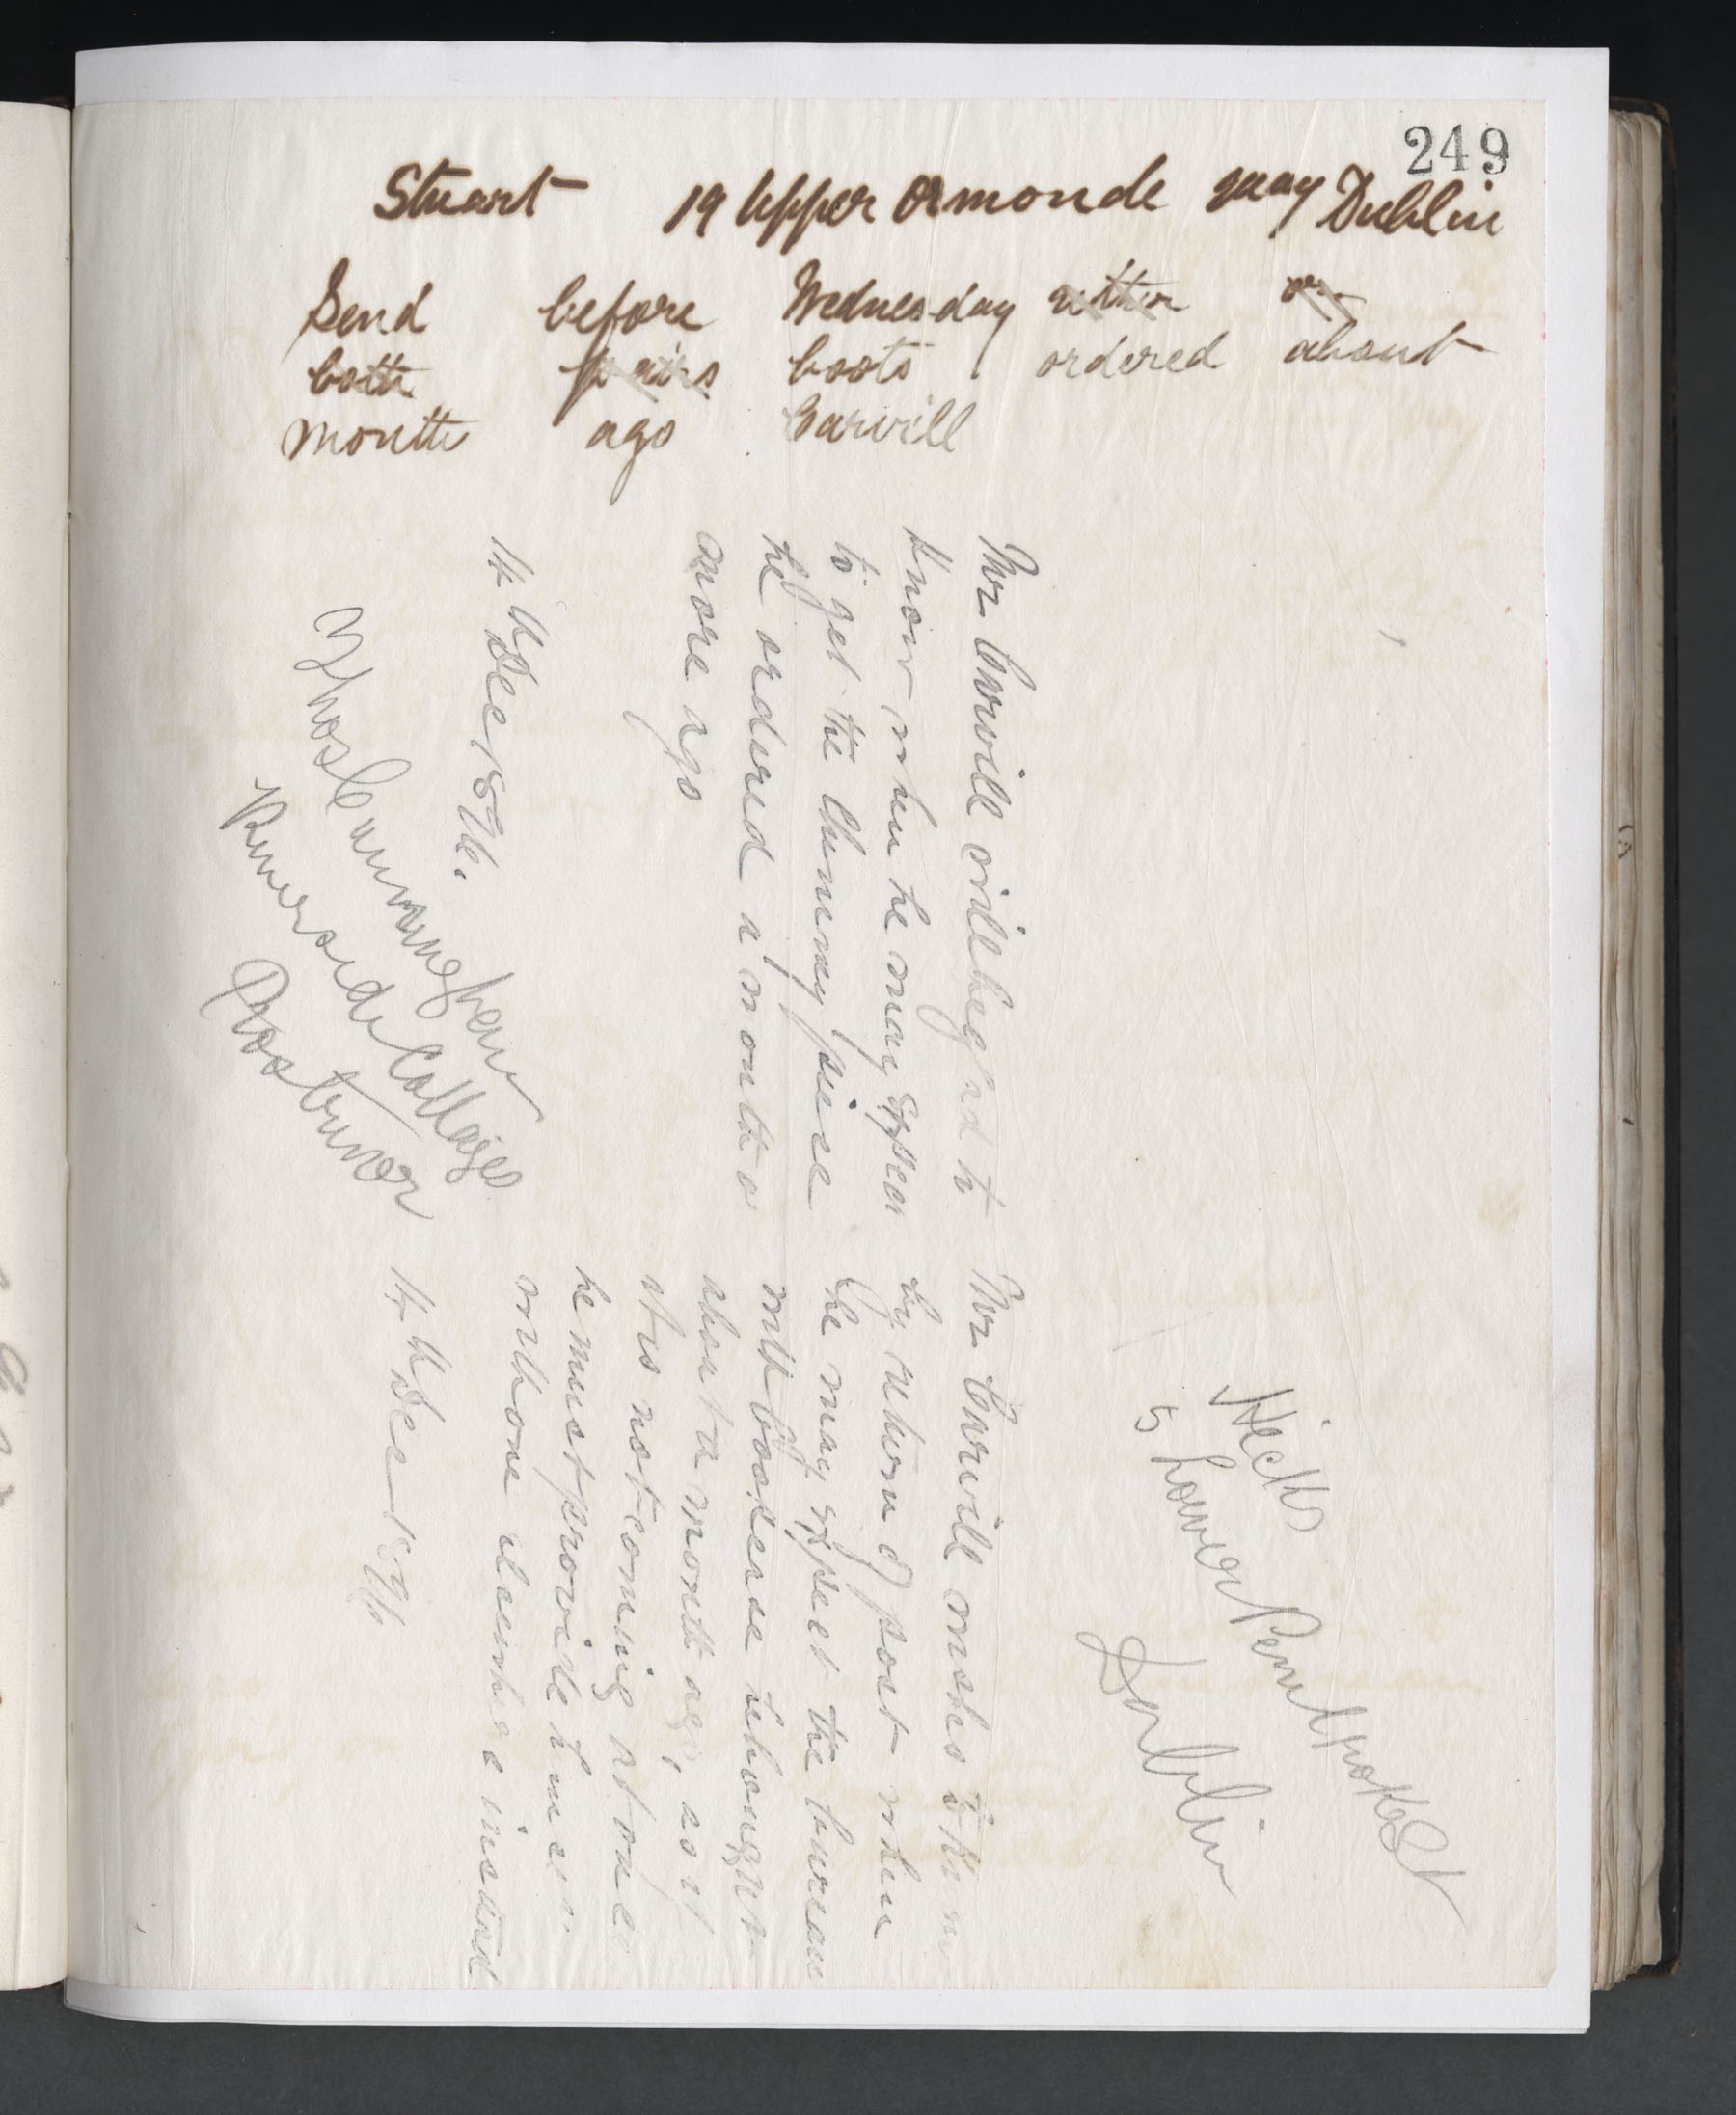 249
Stuart 19 Upper Ormonde quay Dublin
Send before Wednesday either or
both pairs boots ordered about
month ago Carvill
Mr Carvill will be glad to
know when he may expect
to get the Chimney piece
he ordered a month or
more ago
14th Dec 1896.
Thos Cunningham
Riverside Cottages
Rostrevor
Mr Carvill wishes to know
by return of post when
he may expect the bureau
with bookcase he bought
about a month ago, as if
it is not coming at once
he must provide himself
with one elsewhere instead
14th Dec 1896
Hicks
5 Lower Pembroke St
Dublin